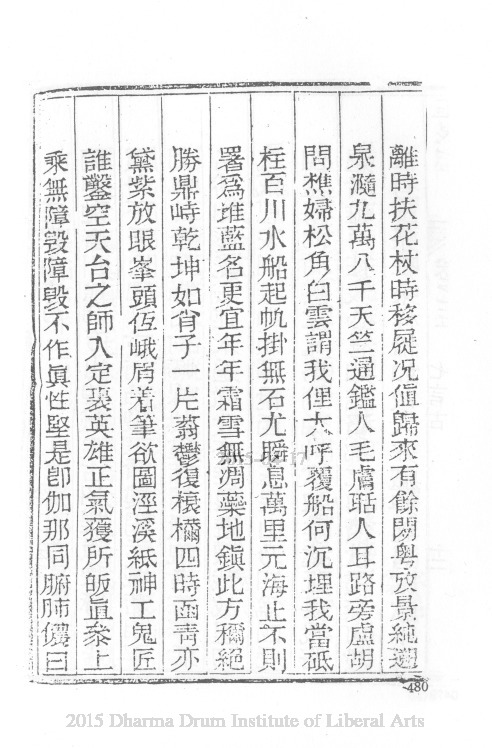 離時扶花杖時移屣况值歸來有餘閑粵攷景純
泉瀡九萬八千天竺通鑑人毛膚聒人耳路旁盧胡
問樵婦松角白雲謂我俚大呼覆船何沉埋我當砥
柱百川水船起帆掛無石尤瞬息萬里元海止不則
署爲堆藍名更宜年年霜雪無凋蘂地鎮此方稱絕
勝鼎峙乾坤如肖子一片蓊鬱復穠檷四時函青亦
黛紫放眼峯頭伍峨眉着筆欲圖涇溪紙神工鬼匠
誰鑿空天台之師入定裏英雄正氣獲所皈眞叅上
乘無障毀障毀不作眞性堅是卽伽那同腑肺儻曰
480
2015 Dharma Drum Institute of Liberal Arts